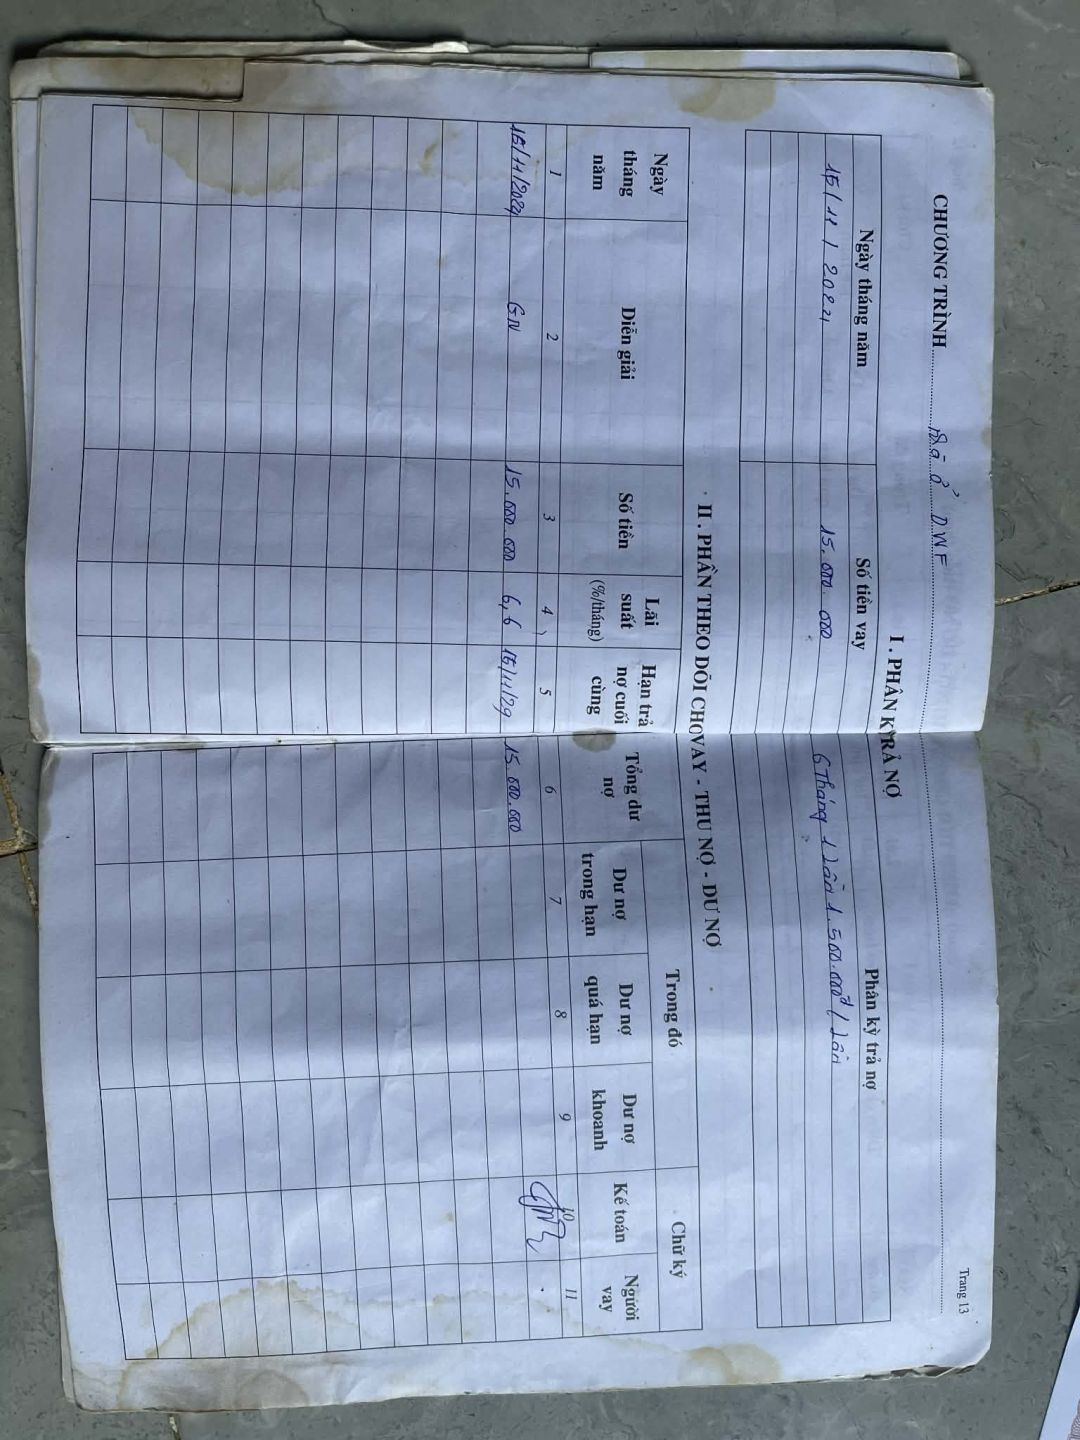 Trang 13
CHƯƠNG TRÌNH Nhà ở DWF
I. PHÂN KỲ TRẢ NỢ
Ngày tháng năm Số tiền vay Phân kỳ trả nợ
15/11/2024 15.000.000 6 Tháng 1 lần 1.500.000đ/lần
II. PHẦN THEO DÕI CHO VAY - THU NỢ - DƯ NỢ
Ngày tháng năm Diễn giải Số tiền Lãi suất (%/tháng) Hạn trả nợ cuối cùng Tổng dư nợ Trong đó Chữ ký
Dư nợ trong hạn Dư nợ quá hạn Dư nợ khoanh Kế toán Người vay
1 2 3 4 5 6 7 8 9 10 11
15/11/2024 GN 15.000.000 6,6 15/11/29 15.000.000